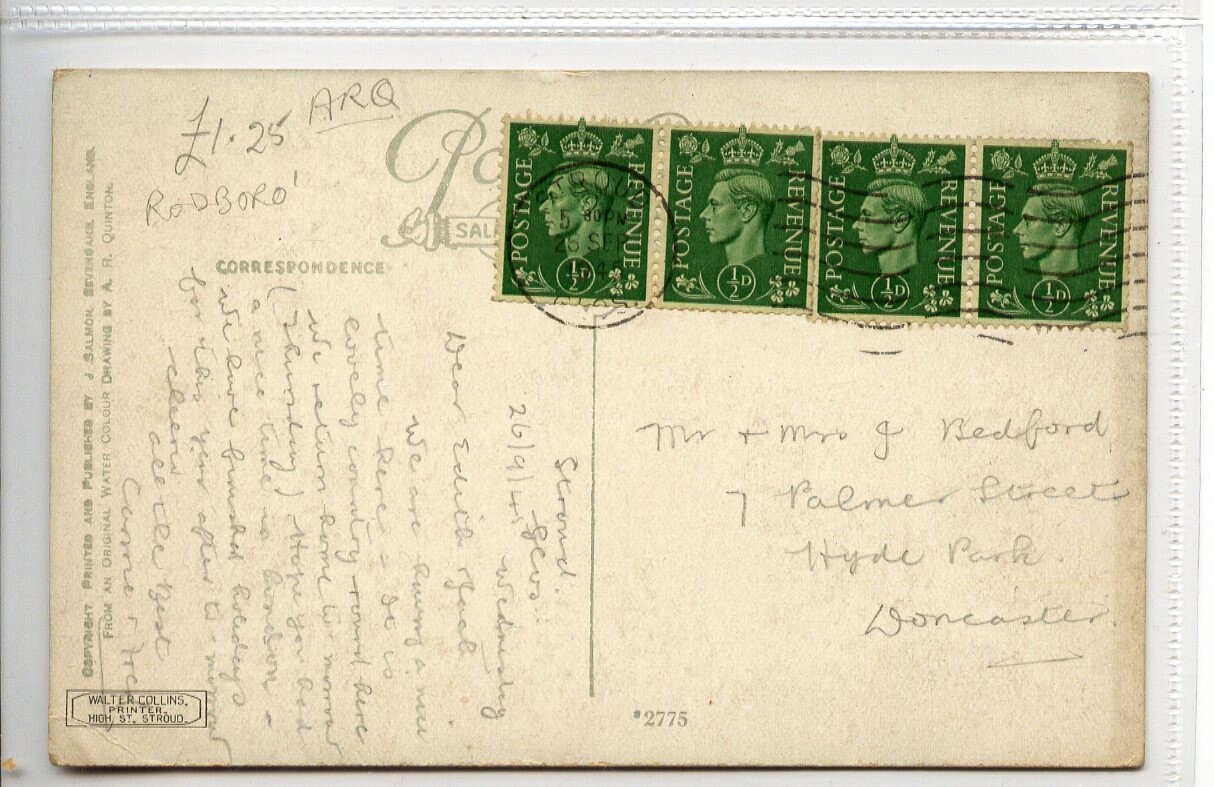 £1.25
ARQ
RODBORO'
CORRESPONDENCE
SAL
POSTAGE REVENUE ½D
POSTAGE REVENUE ½D
POSTAGE REVENUE ½D
POSTAGE REVENUE ½D
STROUD
5 30PM
26 SEP
GLOS
COPYRIGHT PRINTED AND PUBLISHED BY J SALMON SEVENOAKS ENGLAND.
FROM AN ORIGINAL WATER COLOUR DRAWING BY A. R. QUINTON.
Stroud.
Glos.
26/9/45 Wednesday
Dear Edith & Jack.
We are having a nice
time here - It is
lovely country round here
We return home to-morrow
(Thursday) Hope you had
a nice time in London -
We have finished holidays
for this year after to-morrow
cheerio
all the Best
Connie & Fred
Mr + Mrs J Bedford
7 Palmer Street
Hyde Park.
Doncaster.
*2775
WALTER COLLINS,
PRINTER,
HIGH ST. STROUD.